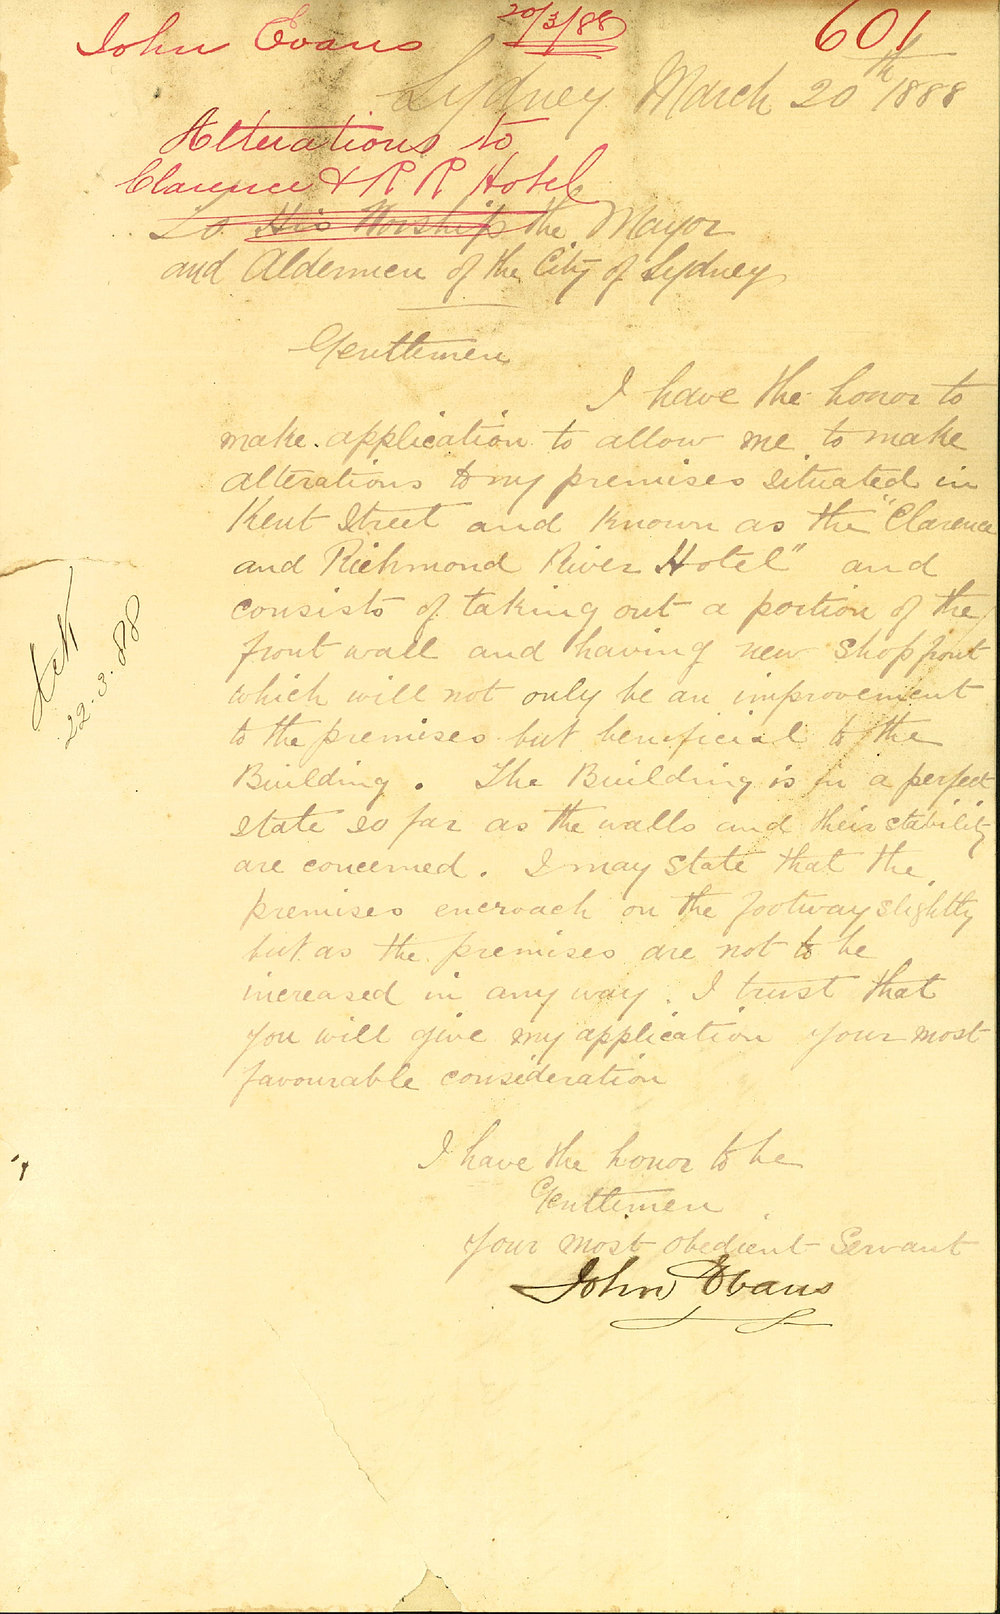 John Evans 20/3/88 601
Sydney March 20th 1888
Alterations to
Clarence & R R Hotel
To His Worship the Mayor
and Aldermen of the City of Sydney
Gentlemen
I have the honor to
make application to allow me to make
alterations to my premises situated in
Kent Street and known as the "Clarence
and Richmond River Hotel" and
consists of taking out a portion of the
front wall and having new shop front
which will not only be an improvement
to the premises but beneficial to the
Building. The Building is in a perfect
state so far as the walls and their stability
are concerned. I may state that the
premises encroach on the footway slightly
but as the premises are not to be
increased in any way. I trust that
you will give my application your most
favourable consideration
22.3.88
I have the honor to be
Gentlemen
Your most obedient Servant
John Evans